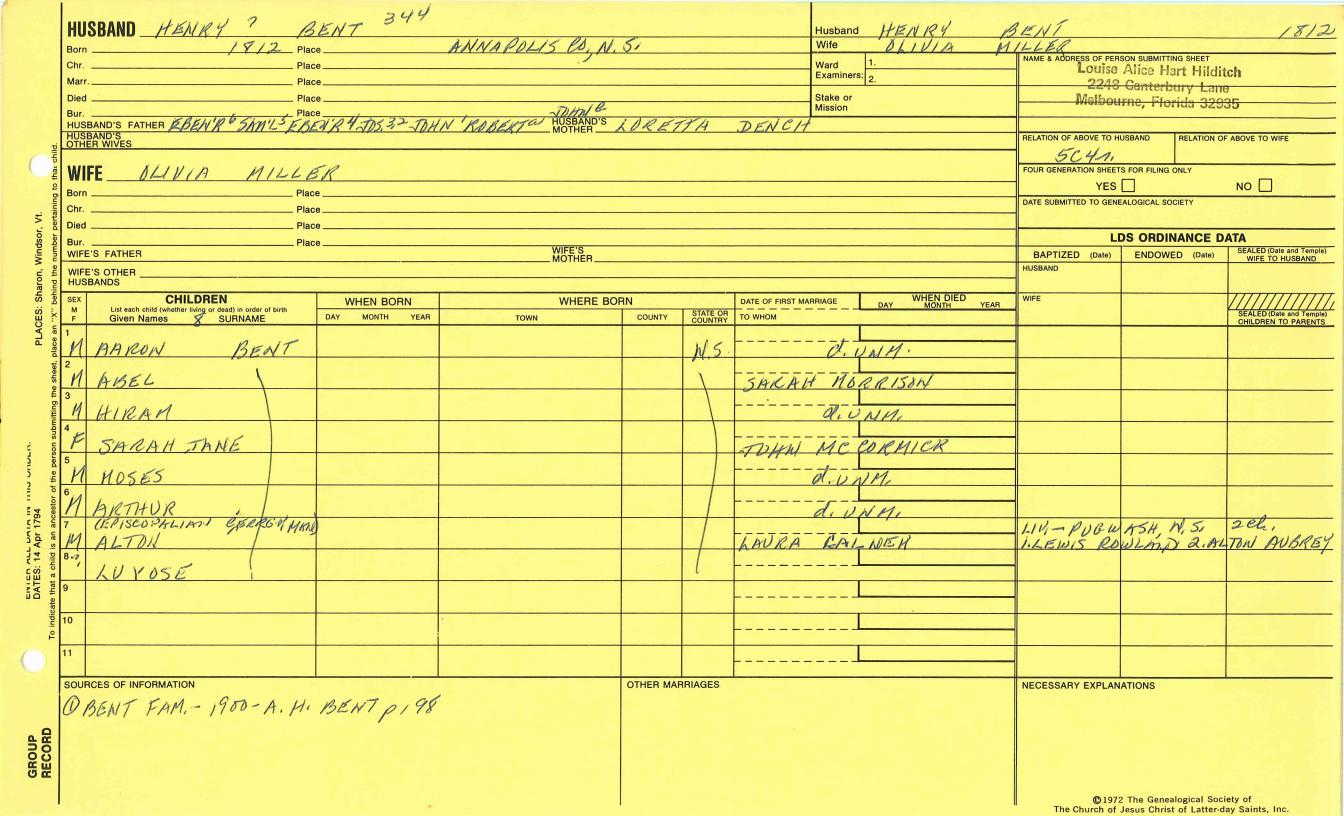 HUSBAND HENRY 7 BENT 344
Born 1812 Place ANNAPOLIS CO, N.S.
Chr. Place
Marr. Place
Died Place
Bur. Place
HUSBAND'S FATHER EBEN'R 6 SAM'L 5 EBEN'R 4 JOS. 3,2 JOHN 1 ROBERT a JOHN B HUSBAND'S MOTHER LORETTA DENCH
HUSBAND'S OTHER WIVES
WIFE OLIVIA MILLER
Born Place
Chr. Place
Died Place
Bur. Place
WIFE'S FATHER WIFE'S MOTHER
WIFE'S OTHER HUSBANDS
Husband HENRY BENT 1812
Wife OLIVIA MILLER
Ward Examiners: 1.
2.
Stake or Mission
NAME & ADDRESS OF PERSON SUBMITTING SHEET
Louise Alice Hart Hilditch
2248 Canterbury Lane
Melbourne, Florida 32935
RELATION OF ABOVE TO HUSBAND RELATION OF ABOVE TO WIFE
5C4r.
FOUR GENERATION SHEETS FOR FILING ONLY
YES NO
DATE SUBMITTED TO GENEALOGICAL SOCIETY
LDS ORDINANCE DATA
BAPTIZED (Date) ENDOWED (Date) SEALED (Date and Temple) WIFE TO HUSBAND
HUSBAND
WIFE
SEALED (Date and Temple) CHILDREN TO PARENTS
SEX M F
CHILDREN
List each child (whether living or dead) in order of birth
Given Names 8 SURNAME
WHEN BORN
DAY MONTH YEAR
WHERE BORN
TOWN COUNTY STATE OR COUNTRY
DATE OF FIRST MARRIAGE
TO WHOM
WHEN DIED
DAY MONTH YEAR
1 M AARON BENT N.S. d. UNM.
2 M ABEL SARAH MORRISON
3 M HIRAM d. UNM.
4 F SARAH JANE JOHN MC CORMICK
5 M MOSES d. UNM.
6 M ARTHUR d. UNM.
(EPISCOPALIAN CLERGYMAN) LIV. - PUGWASH, N.S. 2 ch.
7 M ALTON LAURA 1. LEWIS ROWLAND 2. ALTON AUBREY
8 ? LUVOSE
9
10
11
SOURCES OF INFORMATION
① BENT FAM. - 1900 - A. H. BENT p. 98
OTHER MARRIAGES
NECESSARY EXPLANATIONS
©1972 The Genealogical Society of
The Church of Jesus Christ of Latter-day Saints, Inc.
PLACES: Sharon, Windsor, Vt.
ENTER ALL DATA IN THIS ORDER:
DATES: 14 Apr 1794
To indicate that a child is an ancestor of the person submitting the sheet, place an "X" behind the number pertaining to that child.
GROUP RECORD